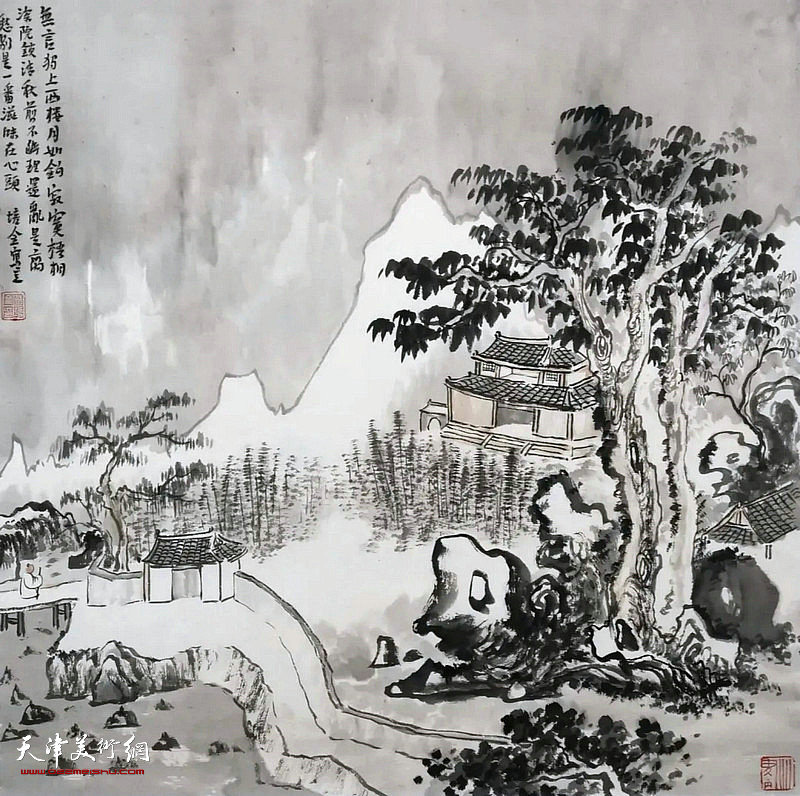 無言獨上西樓月如鉤寂寞梧桐
深院鎖清秋剪不斷理還亂是離
愁別是一番滋味在心頭 培全寫意
天津美術網
www.tjmsw.com